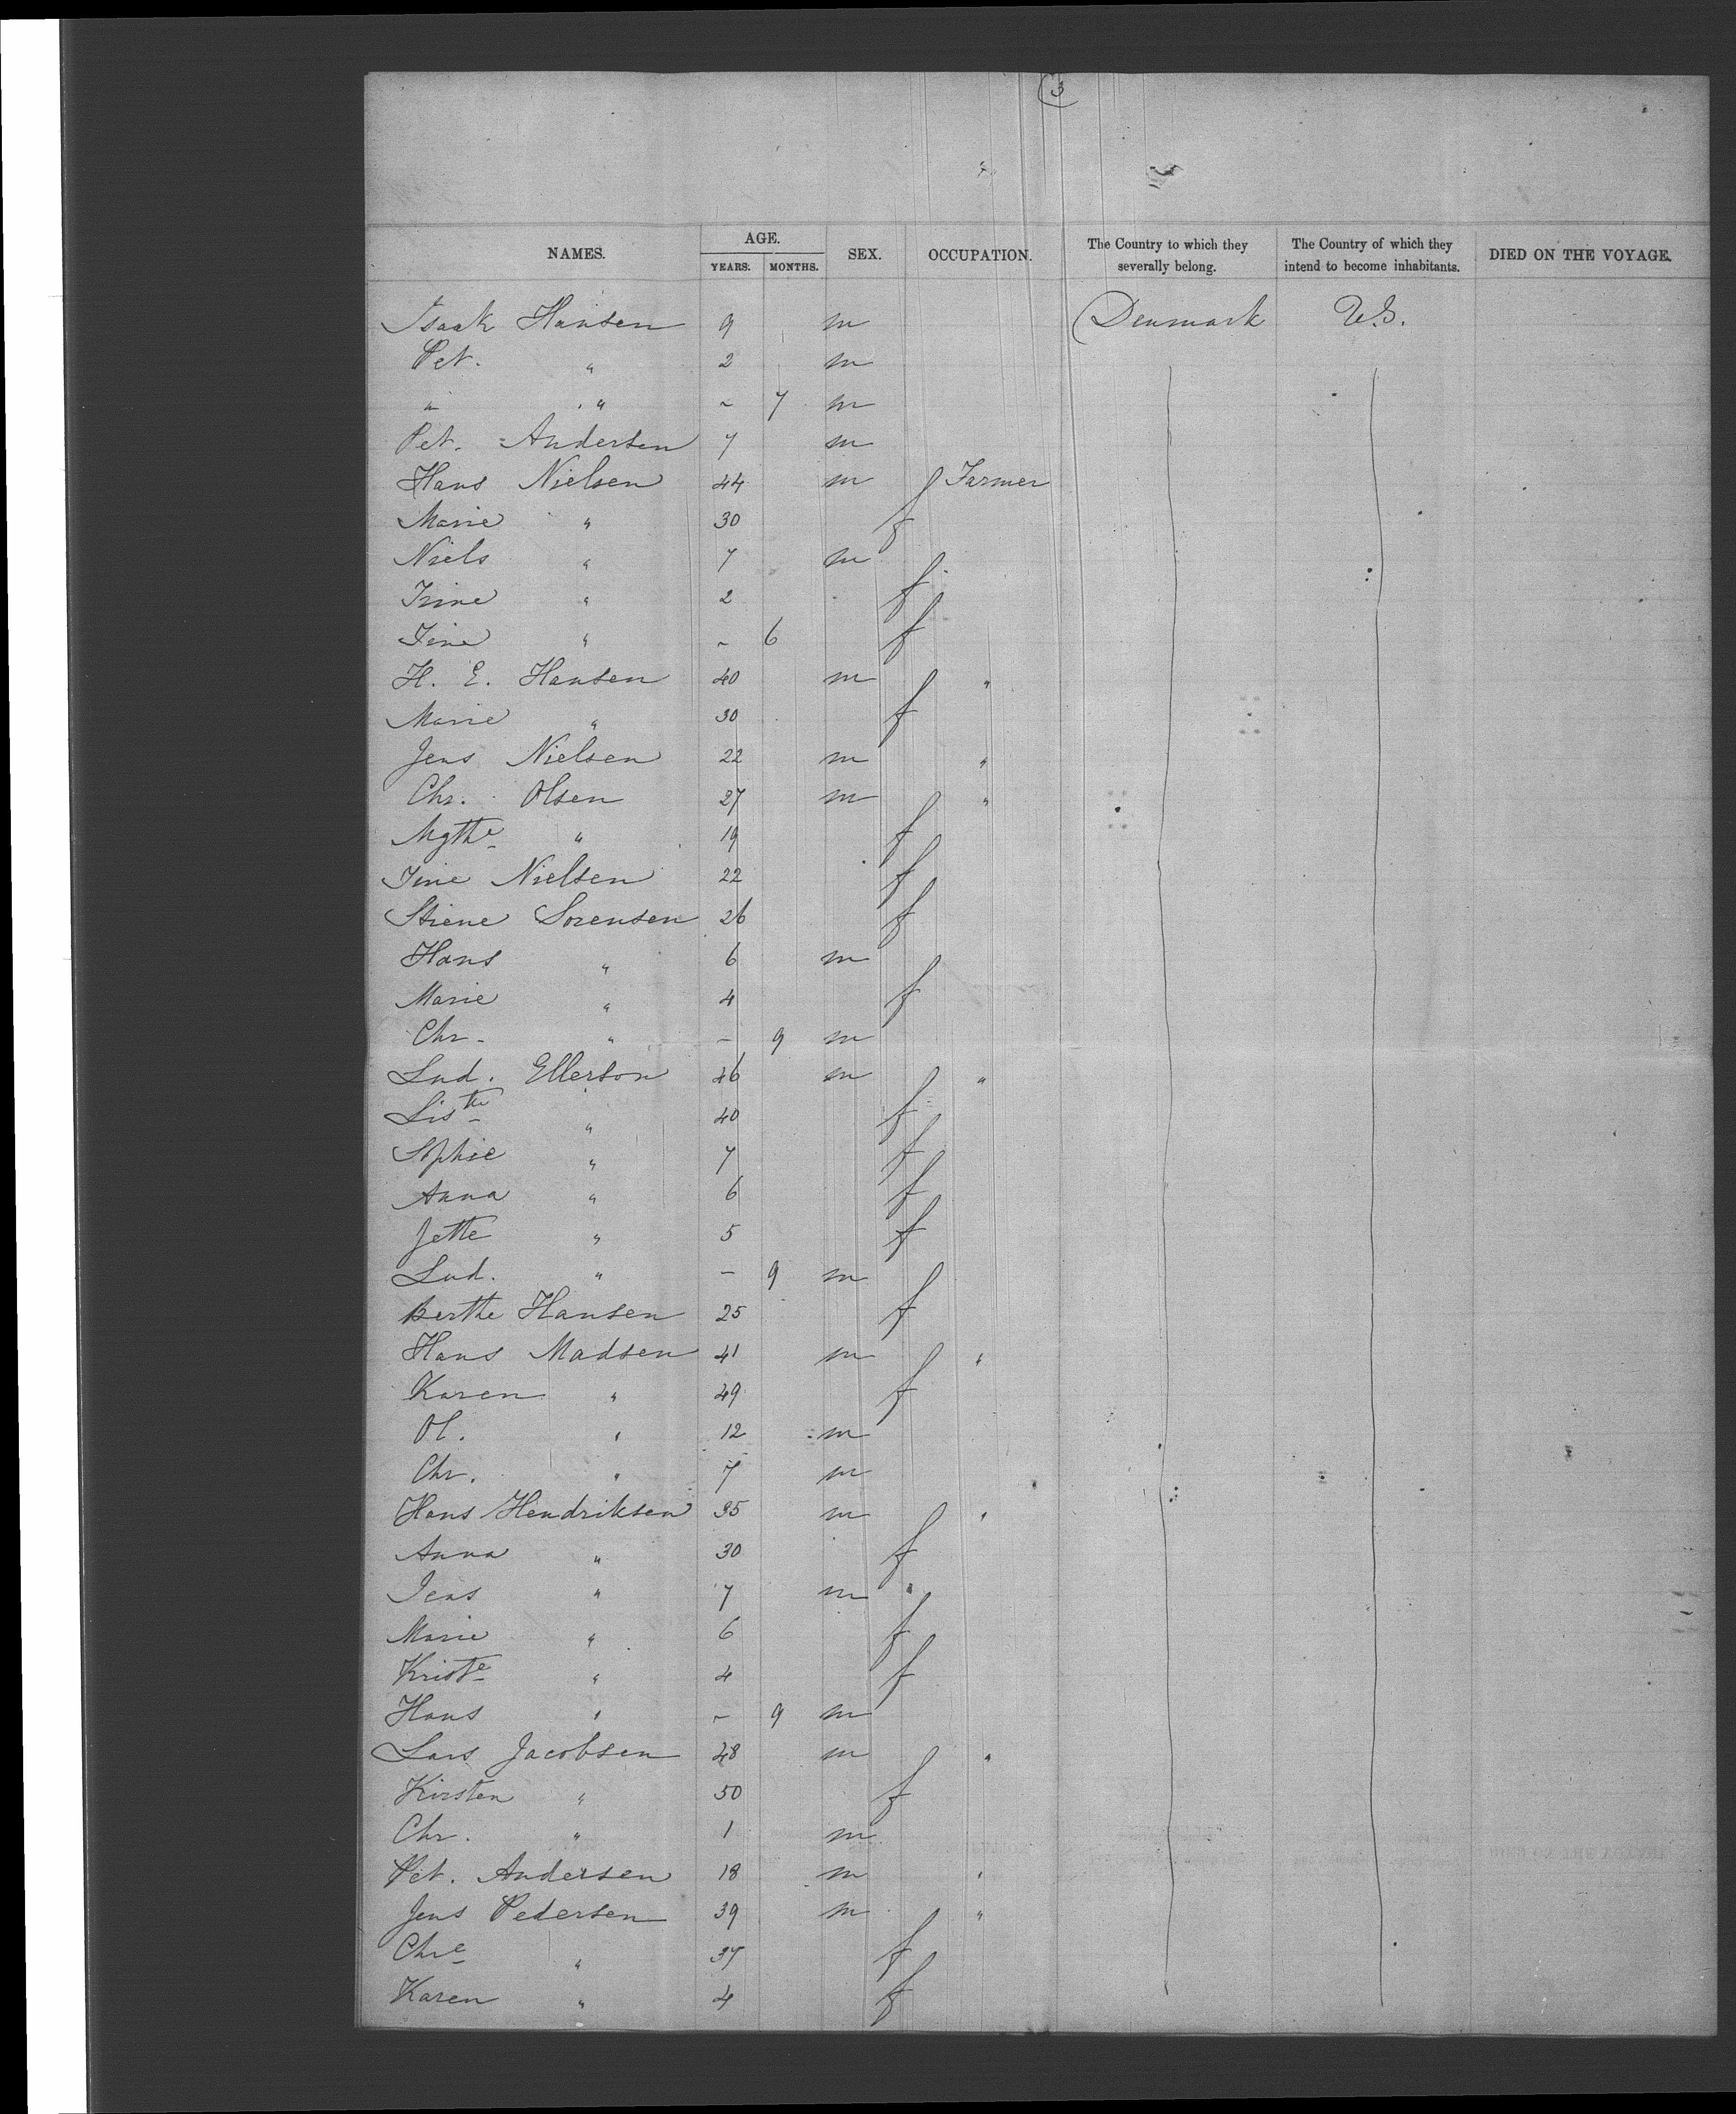 3
NAMES. AGE. YEARS. MONTHS. SEX. OCCUPATION. The Country to which they severally belong. The Country of which they intend to become inhabitants. DIED ON THE VOYAGE.
Isaak Hansen 9 m Denmark U.S.
Pet. " 2 m
" " ~ 7 m
Pet. Andersen 7 m
Hans Nielsen 44 m Farmer
Marie " 30 f
Niels " 7 m
Trine " 2 f
Tine " ~ 6 f
H. E. Hansen 40 m "
Marie " 30 f
Jens Nielsen 22 m "
Chr. Olsen 27 m "
Mgthe " 19 f
Tine Nielsen 22 f
Stiene Sorensen 26 f
Hans " 6 m
Marie " 4 f
Chr. " – 9 m
Lud. Ellerson 46 m "
Listh " 40 f
Sophie " 7 f
Anna " 6 f
Jette " 5 f
Lud. " – 9 m
Berthe Hansen 25 f
Hans Madsen 41 m "
Karen " 49 f
Ol. " 12 m
Chr. " 7 m
Hans Hendriksen 35 m "
Anna " 30 f
Jens " 7 m
Marie " 6 f
Kriste " 4 f
Hans " ~ 9 m
Lars Jacobsen 48 m "
Kirsten " 50 f
Chr. " 1 m
Pet. Andersen 18 m "
Jens Pedersen 39 m "
Chre " 37 f
Karen " 4 f